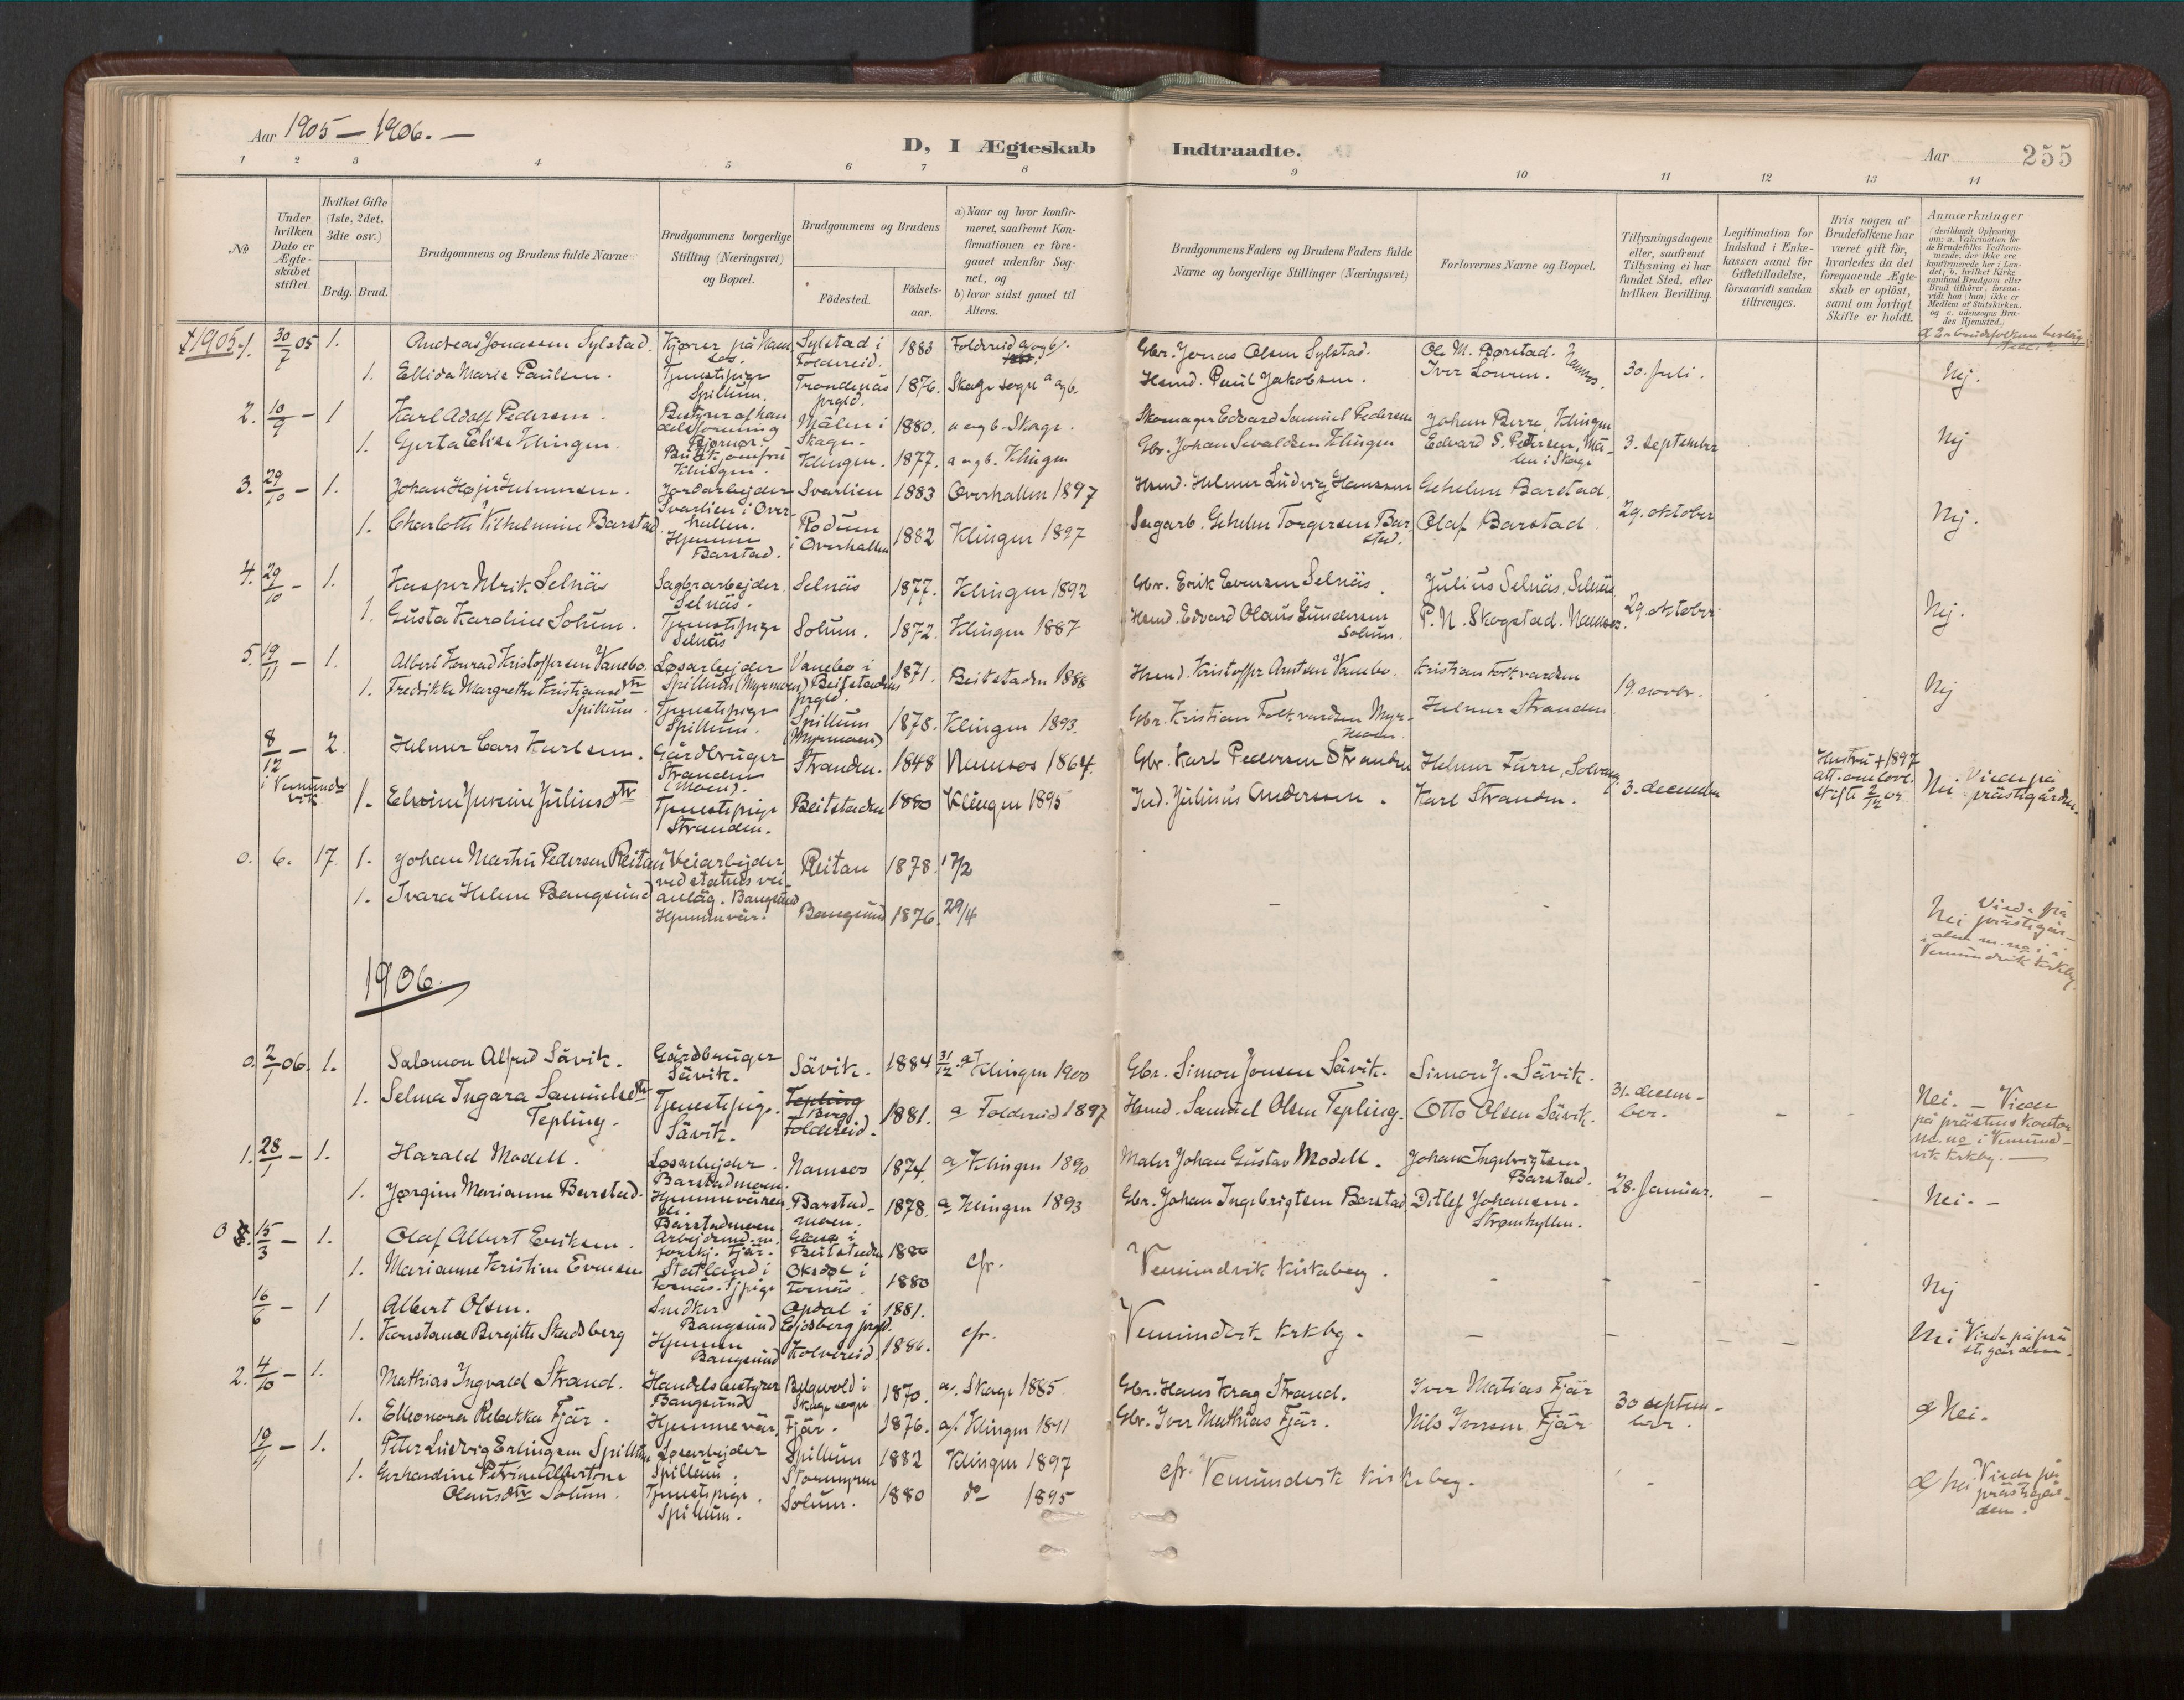 Aar 1905 — 1906. —
D, I Ægteskab Indtraadte.
Aar 255
1 2 3 4 5 6 7 8 9 10 11 12 13 14
No
Under hvilken Dato er Ægteskabet stiftet.
Hvilket Gifte (1ste, 2det, 3die osv.)
Brdg. Brud.
Brudgommens og Brudens fulde Navne
Brudgommens borgerlige Stilling (Næringsvei) og Bopæl.
Brudgommens og Brudens
Födested.
Födselsaar.
a) Naar og hvor konfirmeret, saafremt Konfirmationen er foregaaet udenfor Sognet, og
b) hvor sidst gaaet til Alters.
Brudgommens Faders og Brudens Faders fulde Navne og borgerlige Stillinger (Næringsvei)
Forlovernes Navne og Bopæl.
Tillysningsdagene eller, saafremt Tillysning ei har fundet Sted, efter hvilken Bevilling.
Legitimation for Indskud i Enkekassen samt for Giftetilladelse, forsaavidt saadan tiltrænges.
Hvis nogen af Brudefolkene har været gift før, hvorledes da det foregaaende Ægteskab er opløst, samt om lovligt Skifte er holdt.
Anmærkninger (deriblandt Oplysning om: a. Vakcination for de Brudefolks Vedkommende, der ikke ere konfirmerede her i Landet; b. hvilket Kirkesamfund Brudgom eller Brud tilhører, forsaavidt han (hun) ikke er Medlem af Statskirken, og c. udensogns Brudes Hjemsted.)
1905 1. 30/7 05 1. Andreas Jonassen Sylstad. Kjører på Namsos. Sylstad i Foldereid. 1883 Foldereid a og b. Gbr. Jonas Olsen Sylstad. Ole M. Barstad.
1. Ellida Marie Paulsen. Tjenestepige Spillum. Trondenäs prgld. 1876. Skage sogn a og b. Hsmd. Paul Jakobsen. Iver Louren. Namsos. 30. Juli. Nej.
2. 10/9 — 1 Karl Adolf Pedersen. Bestyrer af handelsforening Bjørnør. Mälen i Skage. 1880. a og b. Skage. Skomager Edvard Samuel Pedersen Johan Birre, Klingen
1. Gjerta Elise Klingen. Butikjomfru Klingen. Klingen. 1877. a og b. Klingen Gbr. Johan Sevaldsen Klingen Edvard S. Pedersen, Mälen i Skage 3. september Nej
3. 29/10 — 1. Johan Højer Helmersen. Jordarbejder Svarlien i Overhallen. Svarlien 1883 Overhallen 1897 Hsmd. Helmer Ludvig Hanssen Gehelm Barstad.
1. Charlotte Vilhelmine Barstad Hjemme Barstad. Rodum i Overhallen 1882 Klingen 1897 Sagarb. Gehelm Torgersen Barstad. Olaf Barstad 29. oktober Nej.
4. 29/10 — 1. Kasper Ulrik Selnäs Sagbrarbejder Selnäs. Selnäs 1877. Klingen 1892 Gbr. Erik Evensen Selnäs. Julius Selnäs, Selnäs
1. Gusta Karoline Solum. Tjenestepige Selnäs Solum. 1872. Klingen 1887 Hsmd. Edvard Olaus Gundersen Solum. P. N. Skogstad. Namsos. 29. oktober Nej.
5. 19/11 — 1. Albert Konrad Kristoffersen Vanebo. Løsarbejder Spillum (Myrmoen) Vanebo i Beitstadens prgld. 1871. Beitstaden 1888 Hsmd. Kristoffer Arntsen Vanebo. Kristian Folkvardsen
1. Fredrikke Margrethe Kristiansdtr Spillum. Tjenestepige Spillum. Spillum (Myrmoen) 1878. Klingen 1893. Gbr. Kristian Folkvardsen Myrmoen. Helmer Stranden 19. novbr. Nej
8/12 — i Vemundvik 2. Helmer Lars Karlsen. Gårdbruger Stranden (Moen). Stranden. 1848 Namsos 1864. Gbr. Karl Pedersen Stranden Helmer Furre, Solvang
1. Edvine Jusine Juliusdtr Tjenestepige Stranden. Beitstaden 1880 Klingen 1895 Ind. Julius Andersen. Karl Stranden. 3. december Hustru † 1897 att. om lovl. skifte 2/12 05 Nei. Viede på prästegården.
0. 6. 17. 1. Johan Martin Pedersen Reitan Veiarbejder ved statens veianläg. Bangsund Reitan 1878. 17/2
1. Ivara Helene Bangsund Hjemmevär. Bangsund 1876. 29/4 — — Nei Viede på prästegården m. no. i Vemundvik kirkebog.
1906.
0. 2/1 06. 1. Salomon Alfred Sävik. Gårdbruger Sävik. Sävik. 1884 31/12 a Klingen 1900 Gbr. Simon Jonsen Sävik. Simon J. Sävik.
1. Selma Ingara Samuelsdtr Tepling. Tjenestepige. Sävik. Berg Foldereid. 1881. a Foldereid 1897 Hsmd. Samuel Olsen Tepling. Otto Olsen Sävik. 31. december. — — Nei. — Viede på prästens kontor m. no i Vemundvik kirkebg. —
1. 28/1 — 1. Harald Modell. Løsarbejder. Barstadmoen. Namsos 1874. a/ Klingen 1890 Maler Johan Gustav Modell. Johan Ingebrigtsen Barstad.
1. Jørgine Marianne Barstad. Hjemmeværende. Barstadmoen Barstadmoen. 1878. a Klingen 1893 Gbr. Johan Ingebrigtsen Barstad Ditlef Johansen. Strømhyllen. 28. Januar. — — Nei. —
0 15/3 — 1. Olaf Albert Eriksen. i Beitstaden 1880
1. Marianne Kristine Evensen Statland i Fosnäs. Tjpige Oksdøl i Fosnäs. 1880 cfr. Vemundvik kirkebog. — — — — Nej
16/6 — 1 Albert Olsen. Snedker Bangsund Opdal i prgld. 1881.
1. Konstanse Bergitte Skadsberg Hjemme Bangsund Kolvereid. 1886. cfr. Vemundvik kirkebg. — — — — Nei Viede på prästegården.
2. 4/10 — 1. Mathias Ingvald Strand. Handelsbestyrer Bangsund i Skage sogn 1870. a/. Skage 1885. Gbr. Hans Krag Strand. Iver Matias Fjär
1. Elleonora Rebekka Fjär. Hjemmevär. Fjär. 1876. a/. Klingen 1891 Gbr. Iver Mathias Fjär. Nils Iversen Fjär 30 september. Nei.
19/11 — 1. Peter Ludvig Erlingsen Spillum Løsarbejder Spillum. Spillum Stormyren 1882 Klingen 1897
1. Gerhardine Petrine Albertine Olausdtr Solum. Tjenestepige. Spillum. Solum. 1880 do 1895 cfr. Vemundvik kirkebog. — Nei Viede på prästegården.